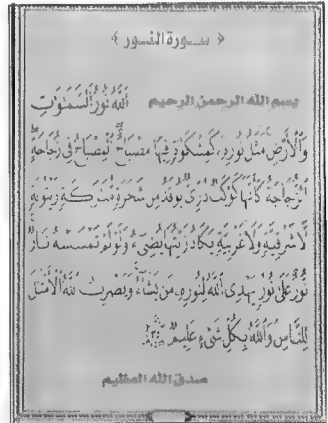 سورة النور
بسم الله الرحمن الرحيم
اللَّهُ نُورُ السَّمَوَاتِ
وَالْأَرْضِ مَثَلُ نُورِهِ كَمِشْكَوٰةٍ فِيهَا مِصْبَاحٌ الْمِصْبَاحُ فِي زُجَاجَةٍ
الزُّجَاجَةُ كَأَنَّهَا كَوْكَبٌ دُرِّيٌّ يُوقَدُ مِن شَجَرَةٍ مُّبَٰرَكَةٍ زَيْتُونَةٍ
لَّا شَرْقِيَّةٍ وَلَا غَرْبِيَّةٍ يَكَادُ زَيْتُهَا يُضِيءُ وَلَوْ لَمْ تَمْسَسْهُ نَارٌ
نُّورٌ عَلَىٰ نُورٍ يَهْدِي اللَّهُ لِنُورِهِ مَن يَشَاءُ وَيَضْرِبُ اللَّهُ الْأَمْثَالَ
لِلنَّاسِ وَاللَّهُ بِكُلِّ شَيْءٍ عَلِيمٌ
صدق الله العظيم